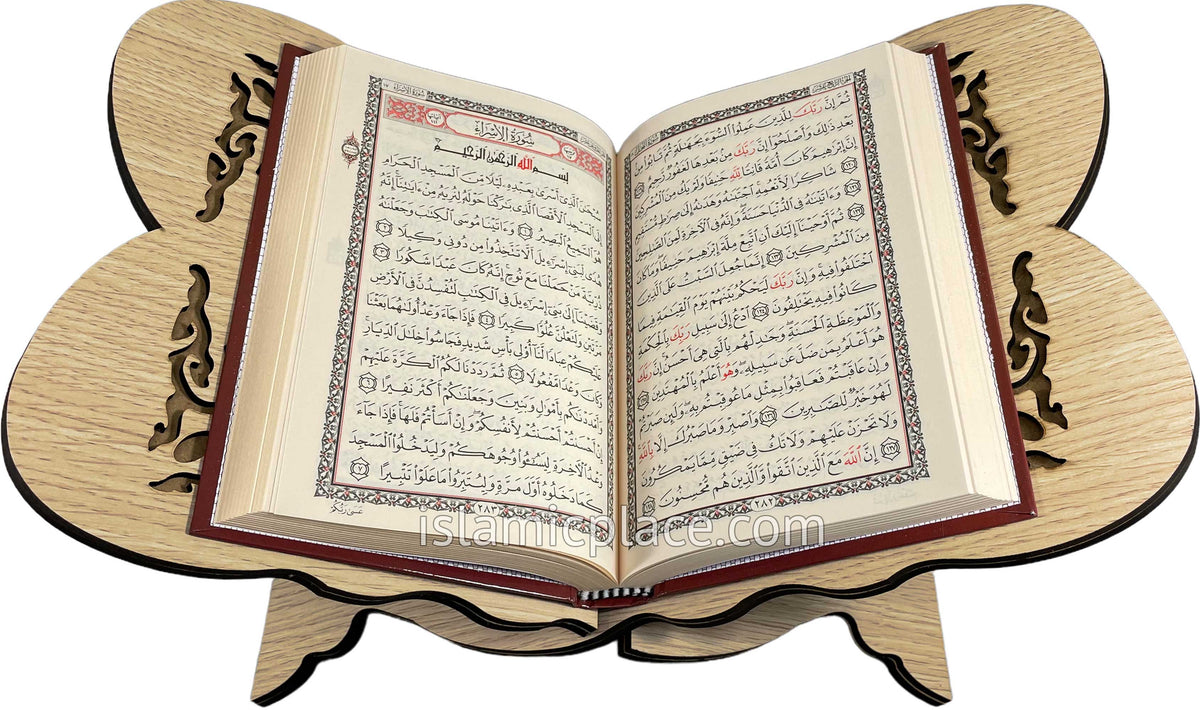 الجزء الرابع عشر
ثُمَّ إِنَّ رَبَّكَ لِلَّذِينَ عَمِلُوا۟ ٱلسُّوٓءَ بِجَهَٰلَةٍ ثُمَّ تَابُوا۟ مِنۢ
بَعْدِ ذَٰلِكَ وَأَصْلَحُوٓا۟ إِنَّ رَبَّكَ مِنۢ بَعْدِهَا لَغَفُورٌ رَّحِيمٌ ١١٩
إِنَّ إِبْرَٰهِيمَ كَانَ أُمَّةً قَانِتًا لِّلَّهِ حَنِيفًا وَلَمْ يَكُ مِنَ ٱلْمُشْرِكِينَ
١٢٠ شَاكِرًا لِّأَنْعُمِهِ ٱجْتَبَىٰهُ وَهَدَىٰهُ إِلَىٰ صِرَٰطٍ مُّسْتَقِيمٍ
١٢١ وَءَاتَيْنَٰهُ فِى ٱلدُّنْيَا حَسَنَةً وَإِنَّهُۥ فِى ٱلْءَاخِرَةِ لَمِنَ ٱلصَّٰلِحِينَ
١٢٢ ثُمَّ أَوْحَيْنَآ إِلَيْكَ أَنِ ٱتَّبِعْ مِلَّةَ إِبْرَٰهِيمَ حَنِيفًا وَمَا كَانَ
مِنَ ٱلْمُشْرِكِينَ ١٢٣ إِنَّمَا جُعِلَ ٱلسَّبْتُ عَلَى ٱلَّذِينَ
ٱخْتَلَفُوا۟ فِيهِ وَإِنَّ رَبَّكَ لَيَحْكُمُ بَيْنَهُمْ يَوْمَ ٱلْقِيَٰمَةِ فِيمَا
كَانُوا۟ فِيهِ يَخْتَلِفُونَ ١٢٤ ٱدْعُ إِلَىٰ سَبِيلِ رَبِّكَ بِٱلْحِكْمَةِ
وَٱلْمَوْعِظَةِ ٱلْحَسَنَةِ وَجَٰدِلْهُم بِٱلَّتِى هِىَ أَحْسَنُ إِنَّ رَبَّكَ
هُوَ أَعْلَمُ بِمَن ضَلَّ عَن سَبِيلِهِۦ وَهُوَ أَعْلَمُ بِٱلْمُهْتَدِينَ ١٢٥
وَإِنْ عَاقَبْتُمْ فَعَاقِبُوا۟ بِمِثْلِ مَا عُوقِبْتُم بِهِۦ وَلَئِن صَبَرْتُمْ
لَهُوَ خَيْرٌ لِّلصَّٰبِرِينَ ١٢٦ وَٱصْبِرْ وَمَا صَبْرُكَ إِلَّا بِٱللَّهِ
وَلَا تَحْزَنْ عَلَيْهِمْ وَلَا تَكُ فِى ضَيْقٍ مِّمَّا يَمْكُرُونَ
١٢٧ إِنَّ ٱللَّهَ مَعَ ٱلَّذِينَ ٱتَّقَوا۟ وَّٱلَّذِينَ هُم مُّحْسِنُونَ ١٢٨
٢٨٢
سورة الإسراء ١٧
سُورَةُ الإِسْرَاءِ
بِسْمِ ٱللَّهِ ٱلرَّحْمَٰنِ ٱلرَّحِيمِ
سُبْحَٰنَ ٱلَّذِىٓ أَسْرَىٰ بِعَبْدِهِۦ لَيْلًا مِّنَ ٱلْمَسْجِدِ ٱلْحَرَامِ
إِلَى ٱلْمَسْجِدِ ٱلْأَقْصَا ٱلَّذِى بَٰرَكْنَا حَوْلَهُۥ لِنُرِيَهُۥ مِنْ ءَايَٰتِنَآ إِنَّهُۥ
هُوَ ٱلسَّمِيعُ ٱلْبَصِيرُ ١ وَءَاتَيْنَا مُوسَى ٱلْكِتَٰبَ وَجَعَلْنَٰهُ
هُدًى لِّبَنِىٓ إِسْرَٰٓءِيلَ أَلَّا تَتَّخِذُوا۟ مِن دُونِى وَكِيلًا ٢
ذُرِّيَّةَ مَنْ حَمَلْنَا مَعَ نُوحٍ إِنَّهُۥ كَانَ عَبْدًا شَكُورًا ٣
وَقَضَيْنَآ إِلَىٰ بَنِىٓ إِسْرَٰٓءِيلَ فِى ٱلْكِتَٰبِ لَتُفْسِدُنَّ فِى ٱلْأَرْضِ
مَرَّتَيْنِ وَلَتَعْلُنَّ عُلُوًّا كَبِيرًا ٤ فَإِذَا جَآءَ وَعْدُ أُولَىٰهُمَا بَعَثْنَا
عَلَيْكُمْ عِبَادًا لَّنَآ أُو۟لِى بَأْسٍ شَدِيدٍ فَجَاسُوا۟ خِلَٰلَ ٱلدِّيَارِ
وَكَانَ وَعْدًا مَّفْعُولًا ٥ ثُمَّ رَدَدْنَا لَكُمُ ٱلْكَرَّةَ عَلَيْهِمْ
وَأَمْدَدْنَٰكُم بِأَمْوَٰلٍ وَبَنِينَ وَجَعَلْنَٰكُمْ أَكْثَرَ نَفِيرًا ٦
إِنْ أَحْسَنتُمْ أَحْسَنتُمْ لِأَنفُسِكُمْ وَإِنْ أَسَأْتُمْ فَلَهَا فَإِذَا جَآءَ
وَعْدُ ٱلْءَاخِرَةِ لِيَسُۥٓـُٔوا۟ وُجُوهَكُمْ وَلِيَدْخُلُوا۟ ٱلْمَسْجِدَ
كَمَا دَخَلُوهُ أَوَّلَ مَرَّةٍ وَلِيُتَبِّرُوا۟ مَا عَلَوْا۟ تَتْبِيرًا ٧
٢٨٣
عَسَىٰ رَبُّكُمْ
islamicplace.com